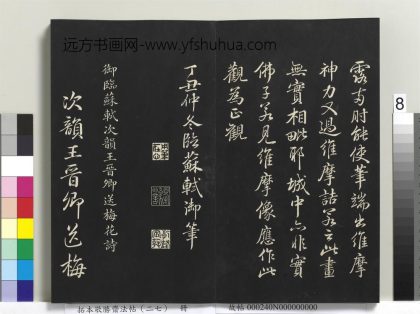 远方书画网-www.yfshuhua.com
露兩肘能使筆端出維摩
神力又過維摩詰若云此畫
無實相毗耶城中亦非實
佛子若見維摩像應作此
觀為正觀
丁丑仲冬臨蘇軾御筆
御臨蘇軾次韻王晉卿送梅花詩
次韻王晉卿送梅
8
拓本敬勝齋法帖(二七) 冊
故帖 000240N000000000